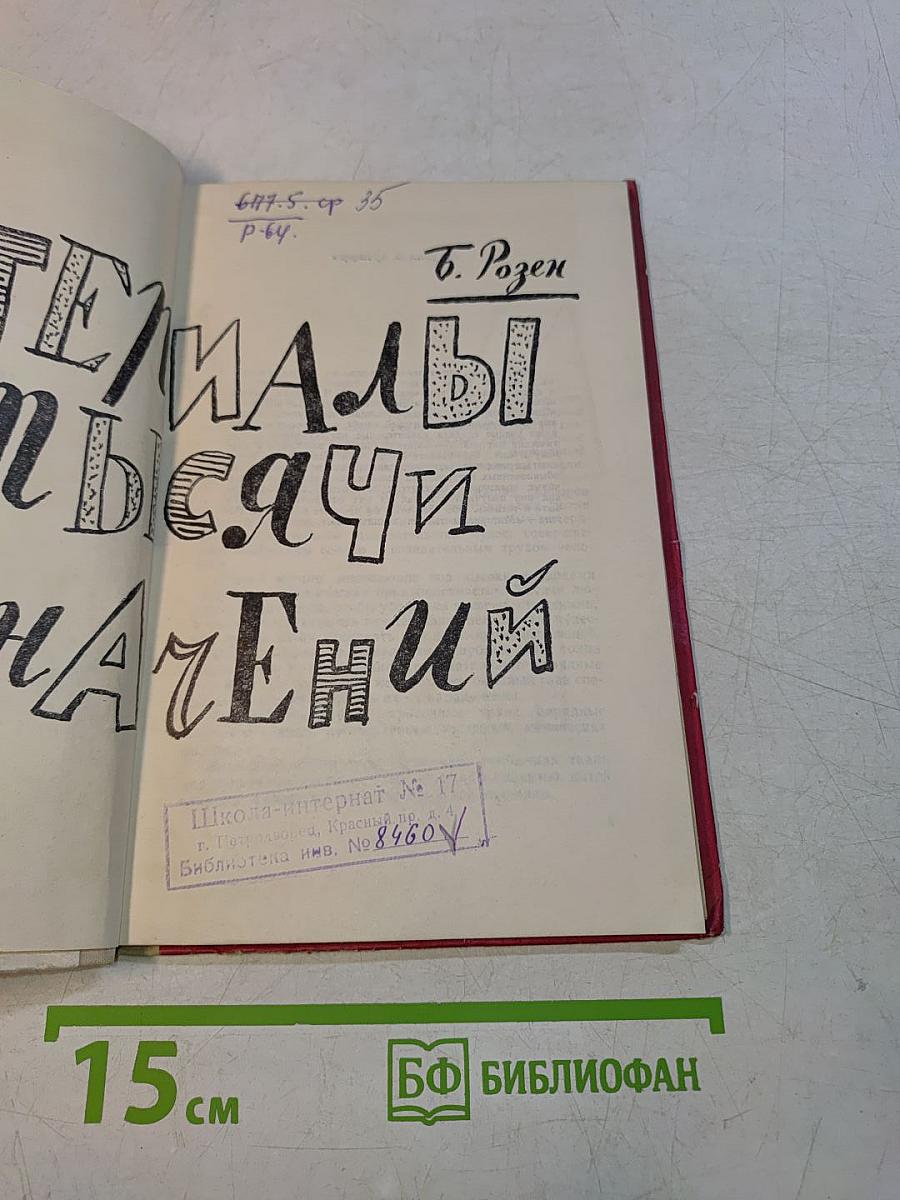 677.5. ср 35
Р-64.
Б. Розен
ТЕРИАЛЫ
ТЫСЯЧИ
НАЧЕНИЙ
Школа-интернат № 17
г. Петродворец, Красный пр. д. 4
Библиотека инв. № 8460
15 см
БФ БИБЛИОФАН